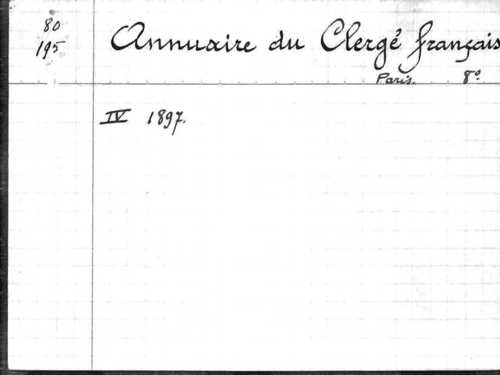 80
195
Annuaire du Clergé français
Paris. 8º
IV 1897.